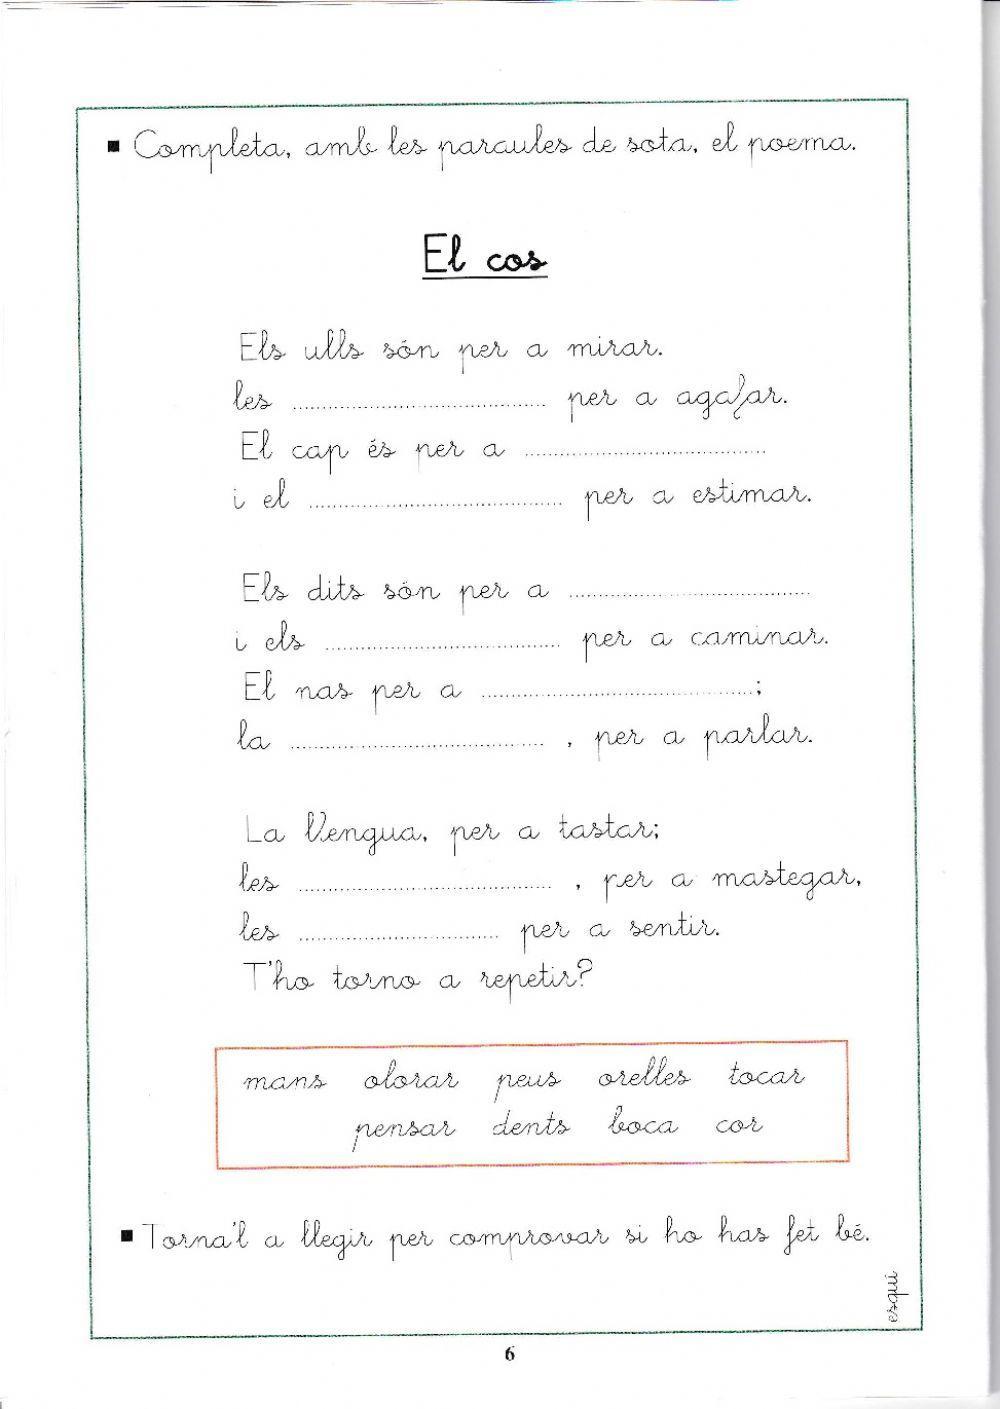 Completa, amb les paraules de sota, el poema.
El cos
Els ulls són per a mirar.
les ........................ per a agafar.
El cap és per a ........................
i el ........................ per a estimar.
Els dits són per a ........................
i els ........................ per a caminar.
El nas per a ........................;
la ........................, per a parlar.
La llengua, per a tastar;
les ........................, per a mastegar,
les ........................ per a sentir.
T'ho torno a repetir?
mans olorar peus orelles tocar
pensar dents boca cor
Torna'l a llegir per comprovar si ho has fet bé.
esquí
6